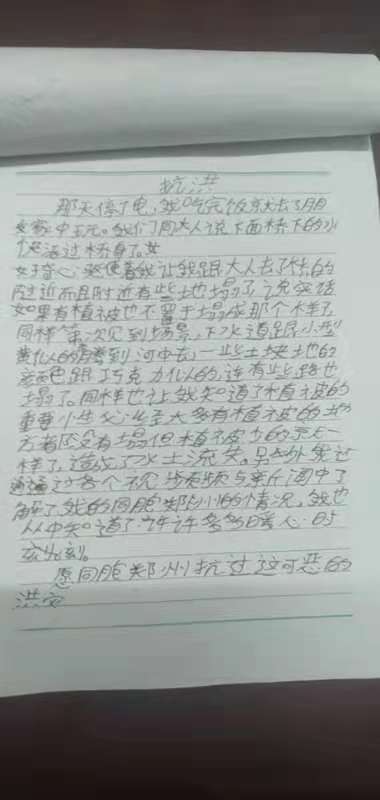 抗洪
那天停了电,我吃完饭就去了朋
友家中玩。我们同大人说下面桥下的水
快活过桥身了。好
奇心驱使着我让我跟大人去了桥的
附近而且附近有些地塌了说实话
如果有植被也不至于塌成那个样子
同样第一次见到场景,下水道跟小型
黄化似的到河中去,一些土块地的
颜色跟巧克力似的,连有些路也
塌了。同样也让我知道了植被的
重要小些必至大多有植被的地
方都还没有塌但植被少的就不一
样了,造成了水土流失。另外我还
通过各个不视频与新闻中了
解了我的同胞郑州的情况,我也
从中知道了许许多多暖心时
刻。
愿同胞郑州抗过这可恶的
洪灾